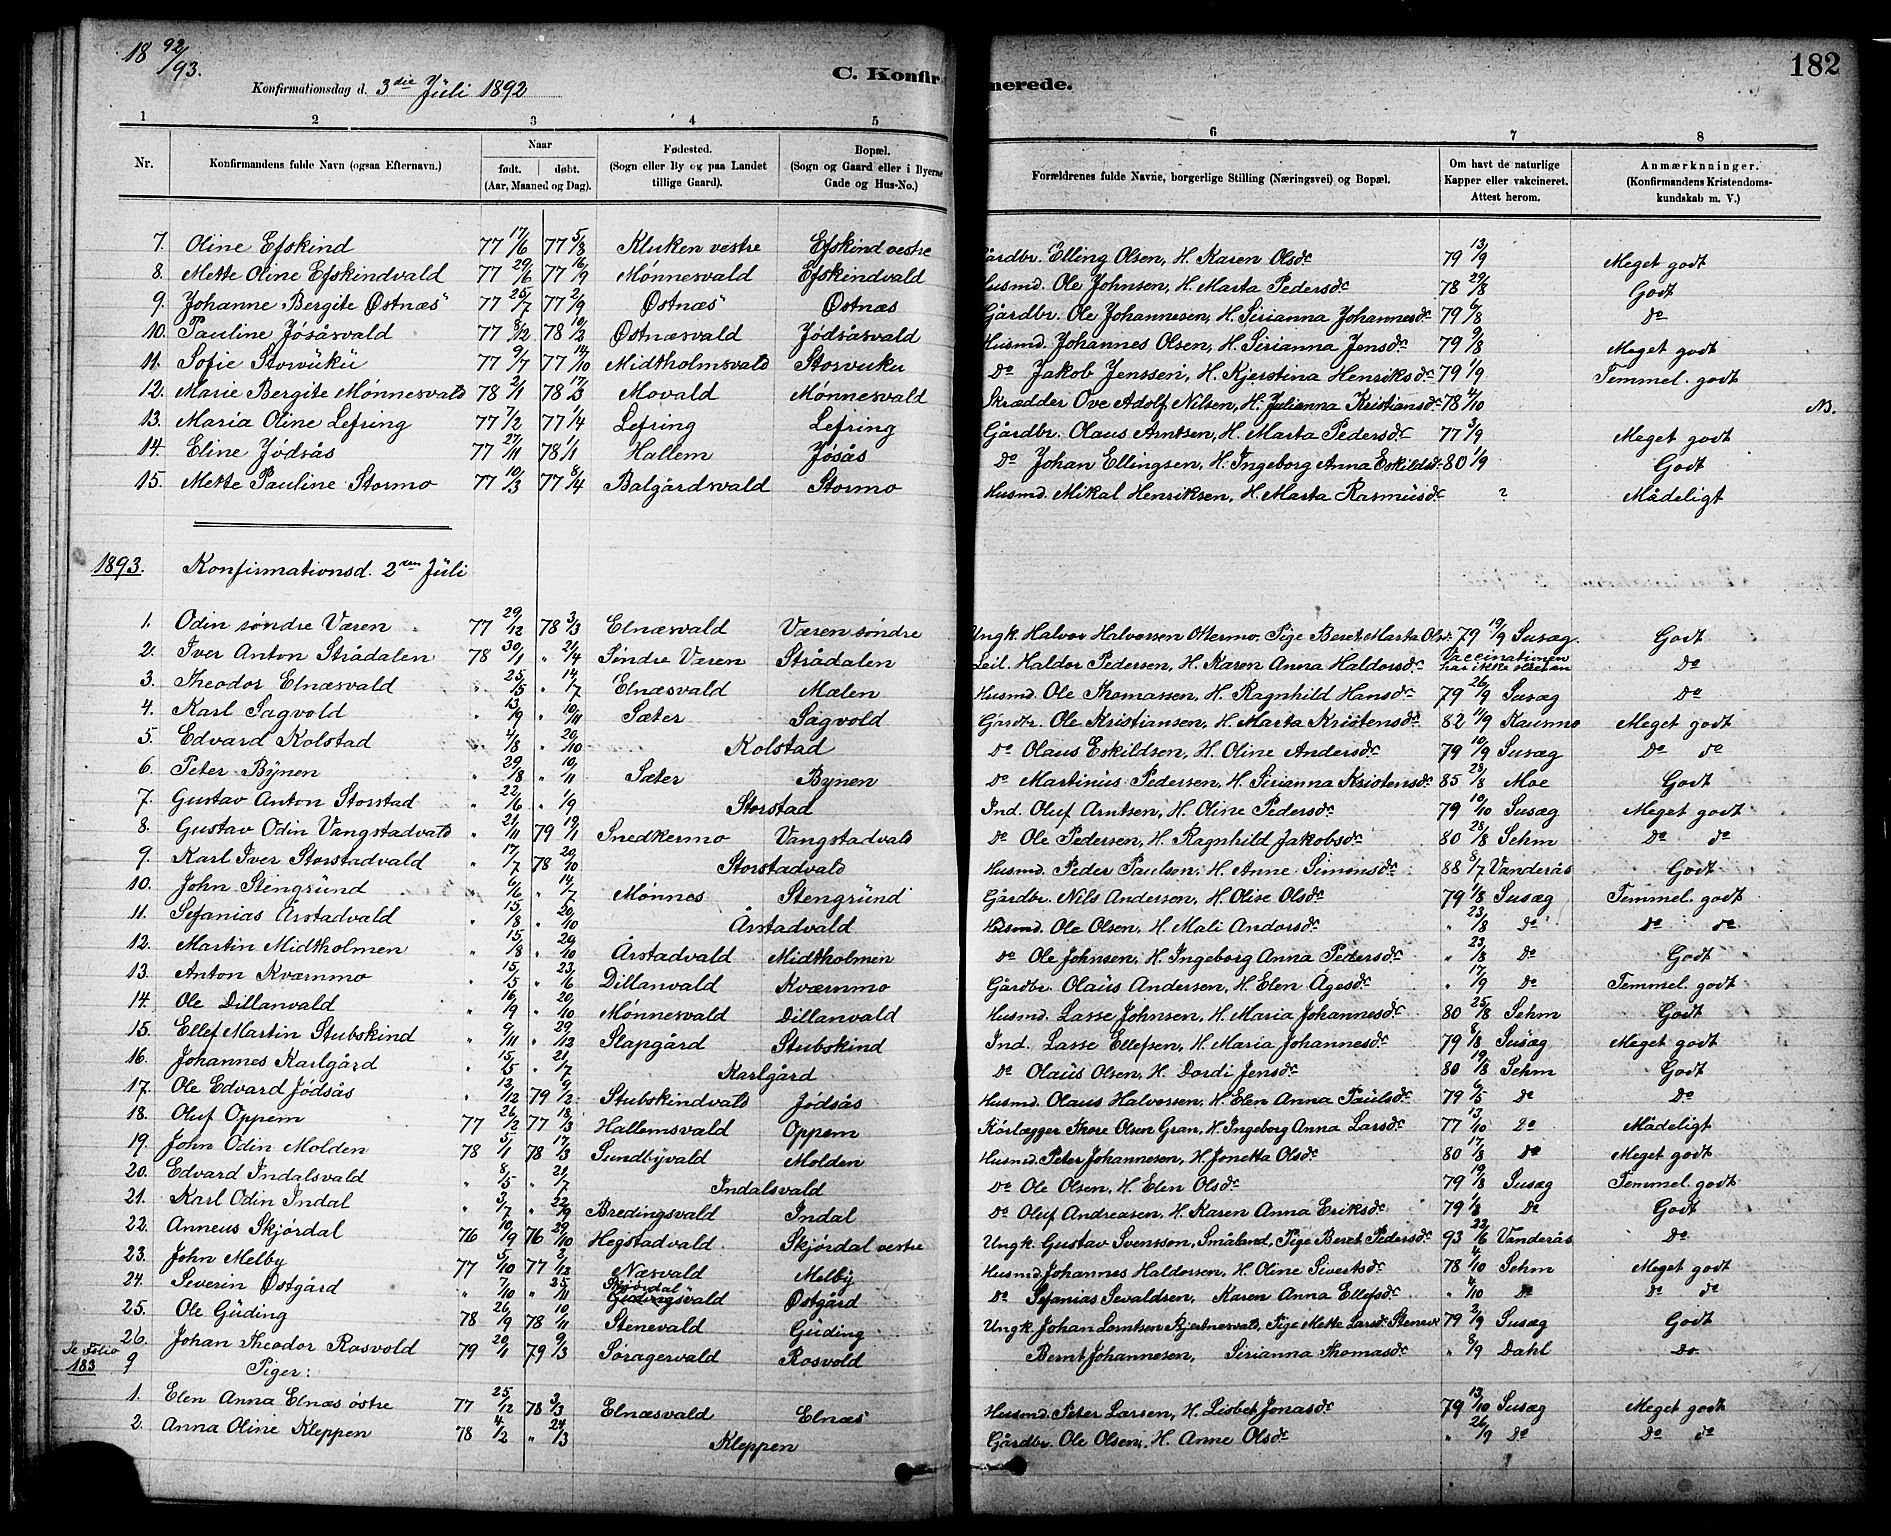 18 92/93.
182
C. Konfirmerede.
Konfirmationsdag d. 3die Jüli 1892
1 2 3 4 5 6 7 8
Nr. Konfirmandens fulde Navn (ogsaa Efternavn.) Naar født. døbt. (Aar, Maaned og Dag). Fødested. (Sogn eller By og paa Landet tillige Gaard). Bopæl. (Sogn og Gaard eller i Byerne Gade og Hus-No.) Forældrenes fulde Navne, borgerlige Stilling (Næringsvei) og Bopæl. Om havt de naturlige Kapper eller vakcineret. Attest herom. Anmærknninger. (Konfirmandens Kristendomskundskab m. V.)
7. Oline Efskind 77 17/6 77 5/8 Kluken vestre Efskind vestre Gårdbr. Elling Olsen, H. Karen Olsdr 79 13/9 Meget godt
8. Mette Oline Efskindvald 77 29/6 77 16/9 Mønnesvald Efskindvald Husmd. Ole Johnsen, H. Marta Pedersdr 78 29/8 Godt
9. Johanne Bergite Østnæs 77 25/7 77 2/9 Østnæs Østnæs Gårdbr. Ole Johannesen, H. Sirianna Johannesdr 79 6/8 Do
10. Pauline Jøsåsvald 77 8/12 78 10/2 Østnæsvald Jødsåsvald Husmd. Johannes Olsen, H. Sirianna Jensdr 79 9/8 Meget godt
11. Sofie Storvüku 77 9/7 77 14/10 Midtholmsvald Storvuku Do Jakob Jenssen, H. Kjerstina Henriksdr 79 1/9 Temmel. godt
12. Marie Bergite Mønnesvald 78 2/1 78 17/3 Movald Mønnesvald Skrædder Ove Adolf Nilsen, H. Julianna Kristiansdr 78 4/10 NB.
13. Maria Oline Lefring 77 7/2 77 1/4 Lefring Lefring Gårdbr. Olaus Arntsen, H. Marta Pedersdr 77 3/9 Meget godt
14. Eline Jødsås 77 27/11 78 1/1 Hallem Jøsås Do Johan Ellingsen, H. Ingeborg Anna Eskildsd 80 1/9 Godt
15. Mette Pauline Stormo 77 10/3 77 8/4 Balgårdsvald Stormo Husmd. Mikal Henriksen, H. Marta Rasmüsdr ? Mådeligt
1893. Konfirmationsd. 2den Jüli
1. Odin søndre Væren 77 29/12 78 3/3 Elnæsvald Væren søndre Ungk. Halvor Halvorsen Ottermo, Pige Beret Marta Olsd. 79 19/9 Susæg. Godt
2. Iver Anton Strådalen 78 30/1 " 21/4 Søndre Væren Strådalen Leil. Haldor Pedersen, H. Karen Anna Haldorsdr Vaccinationen har ikke Do
3. Theodor Elnæsvald " 25/5 " 14/7 Elnæsvald Mælen Husmd. Ole Thomassen, H. Ragnhild Hansdr 79 26/9 Susæg Do
4. Karl Sagvold " 13/9 " 10/11 Sæter Sagvold Gårdbr. Ole Kristiansen, H. Marta Kristensdr 82 11/9 Kausmo Meget godt
5. Edvard Kolstad " 4/8 " 20/10 Kolstad Do Olaus Eskildsen, H. Oline Andersdr 79 10/9 Susæg Do do
6. Peter Bÿnen " 29/8 " 10/11 Sæter Bynen Do Martinius Pedersen, H. Sirianna Kristensdr 85 28/8 Moe Godt
7. Gustav Anton Storstad " 22/6 " 1/9 Storstad Ind. Oluf Arntsen, H. Oline Pedersdr 79 10/10 Susæg Meget godt
8. Gustav Odin Vangstadvald " 21/11 79 19/1 Snedkermo Vangstadvald Do Ole Pedersen, H. Ragnhild Jakobsdr 80 28/8 Sehm Do do
9. Karl Iver Storstadvald " 17/7 78 20/10 Storstadvald Husmd. Peder Paulsen, H. Anne Simonsdr 88 8/7 Vanderås Godt
10. John Stengründ " 6/6 " 14/7 Mønnes Stengründ Gårdbr. Nils Andersen, H. Olise Olsdr 79 1/8 Susæg Temmel. godt
11. Sefanias Årstadvald " 15/8 " 20/10 Årstadvald Husmd. Ole Olsen, H. Mali Andorsdr " 23/8 Do Do do
12. Martin Midtholmen " 15/8 " 29/10 Årstadvald Midtholmen Do Ole Johnsen, H. Ingeborg Anna Pedersdr " 23/8 Do Godt
13. Anton Kværnmo " 15/5 " 23/6 Dillanvald Kværnmo Gårdbr. Olaüs Andersen, H. Elen Ågesdr " 17/9 Do Temmel. godt
14. Ole Dillanvald " 16/9 " 20/10 Mønnesvald Dillanvald Husmd. Lasse Johnsen, H. Maria Johannesdr 80 25/8 Sehm Godt
15. Ellef Martin Stubskind " 9/11 " 29/12 Slapgård Stubskind Ind. Lasse Ellefsen, H. Maria Johannesdr 79 8/8 Susæg Meget godt
16. Johannes Karlgård " 15/5 " 21/7 Karlgård Do Olaüs Olsen, H. Dordi Jensdr 80 19/8 Sehm Godt
17. Ole Edvard Jødsås " 12/12 79 9/2 Stubskindvald Jødsås Husmd. Olaus Halvorsen, H. Elen Anna Paülsdr 79 6/5 Do Do
18. Oluf Oppem 77 26/2 77 18/3 Hallemsvald Oppem Rørlægger Thore Olsen Gran, H. Ingeborg Anna Larsdr 77 13/10 Do Mådeligt
19. John Odin Molden 78 5/1 78 17/3 Sundbyvald Molden Husmd. Peter Johannesen, H. Jonetta Olsdr 80 17/8 Do Meget godt
20. Edvard Indalsvald " 8/5 " 21/7 Indalsvald Do Ole Olsen, H. Elen Olsdr 79 19/8 Susæg Temmel. godt
21. Karl Odin Indal " 3/7 " 22/9 Bredingsvald Indal Do Oluf Andreasen, H. Karen Anna Eriksdr 79 1/8 Do Godt
22. Anneus Skjørdal 76 10/9 76 29/10 Hegstadvald. Skjørdal vestre Ungk. Gustav Svensson, Småland, Pige Beret Pedersdr 93 22/6 Vanderås Do
23. John Melby 77 5/10 77 2/12 Næsvald Melbÿ Husmd. Johannes Haldorsen, H. Oline Sivertsdr 78 4/10 Sehm Meget godt
24. Severin Østgård " 7/10 " 25/11 Skjørdal Güdingsvald Østgård Do Sefanias Sevaldsen, Karen Anna Ellefsdr " 4/10 Do Do do
25. Ole Güding 78 26/9 78 10/11 Stenevald Güding Ungk. Johan Lorntsen Hjertnesvald, Pige Mette Larsdr Stenev 79 2/9 Susæg Godt
26. Johan Theodor Rosvold 79 20/1 79 9/3 Søragervald Rosvold Bernt Johannesen, Sirianna Thomasdr " 8/9 Dahl Do
Se Folio 183 9 Piger:
1. Elen Anna Elnæs østre 77 25/12 78 3/3 Elnæsvald Elnæs Husmd. Peter Larsen, H. Lisbet Jonasdr 79 13/10 Susæg Meget godt
2. Anna Oline Kleppen 78 4/2 " 24/3 Kleppen Gårdbr. Ole Olsen, H. Anne Olsdr " 26/9 Do Do do